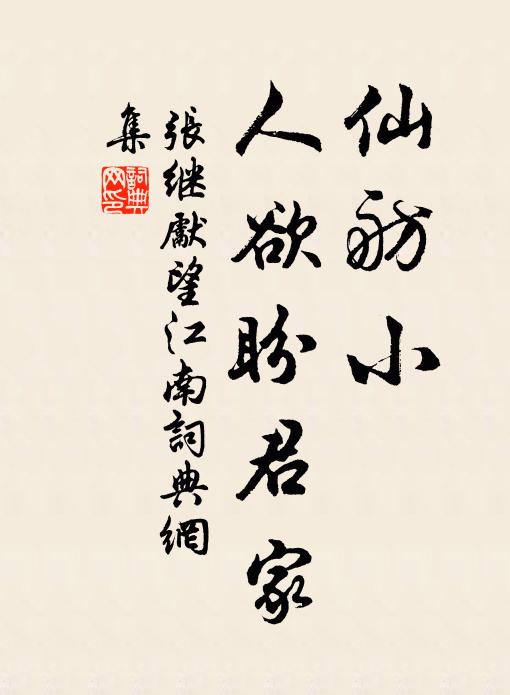 仙舫小
人欲盼君家
張继獻望江南詞典網
集
詞典
网印